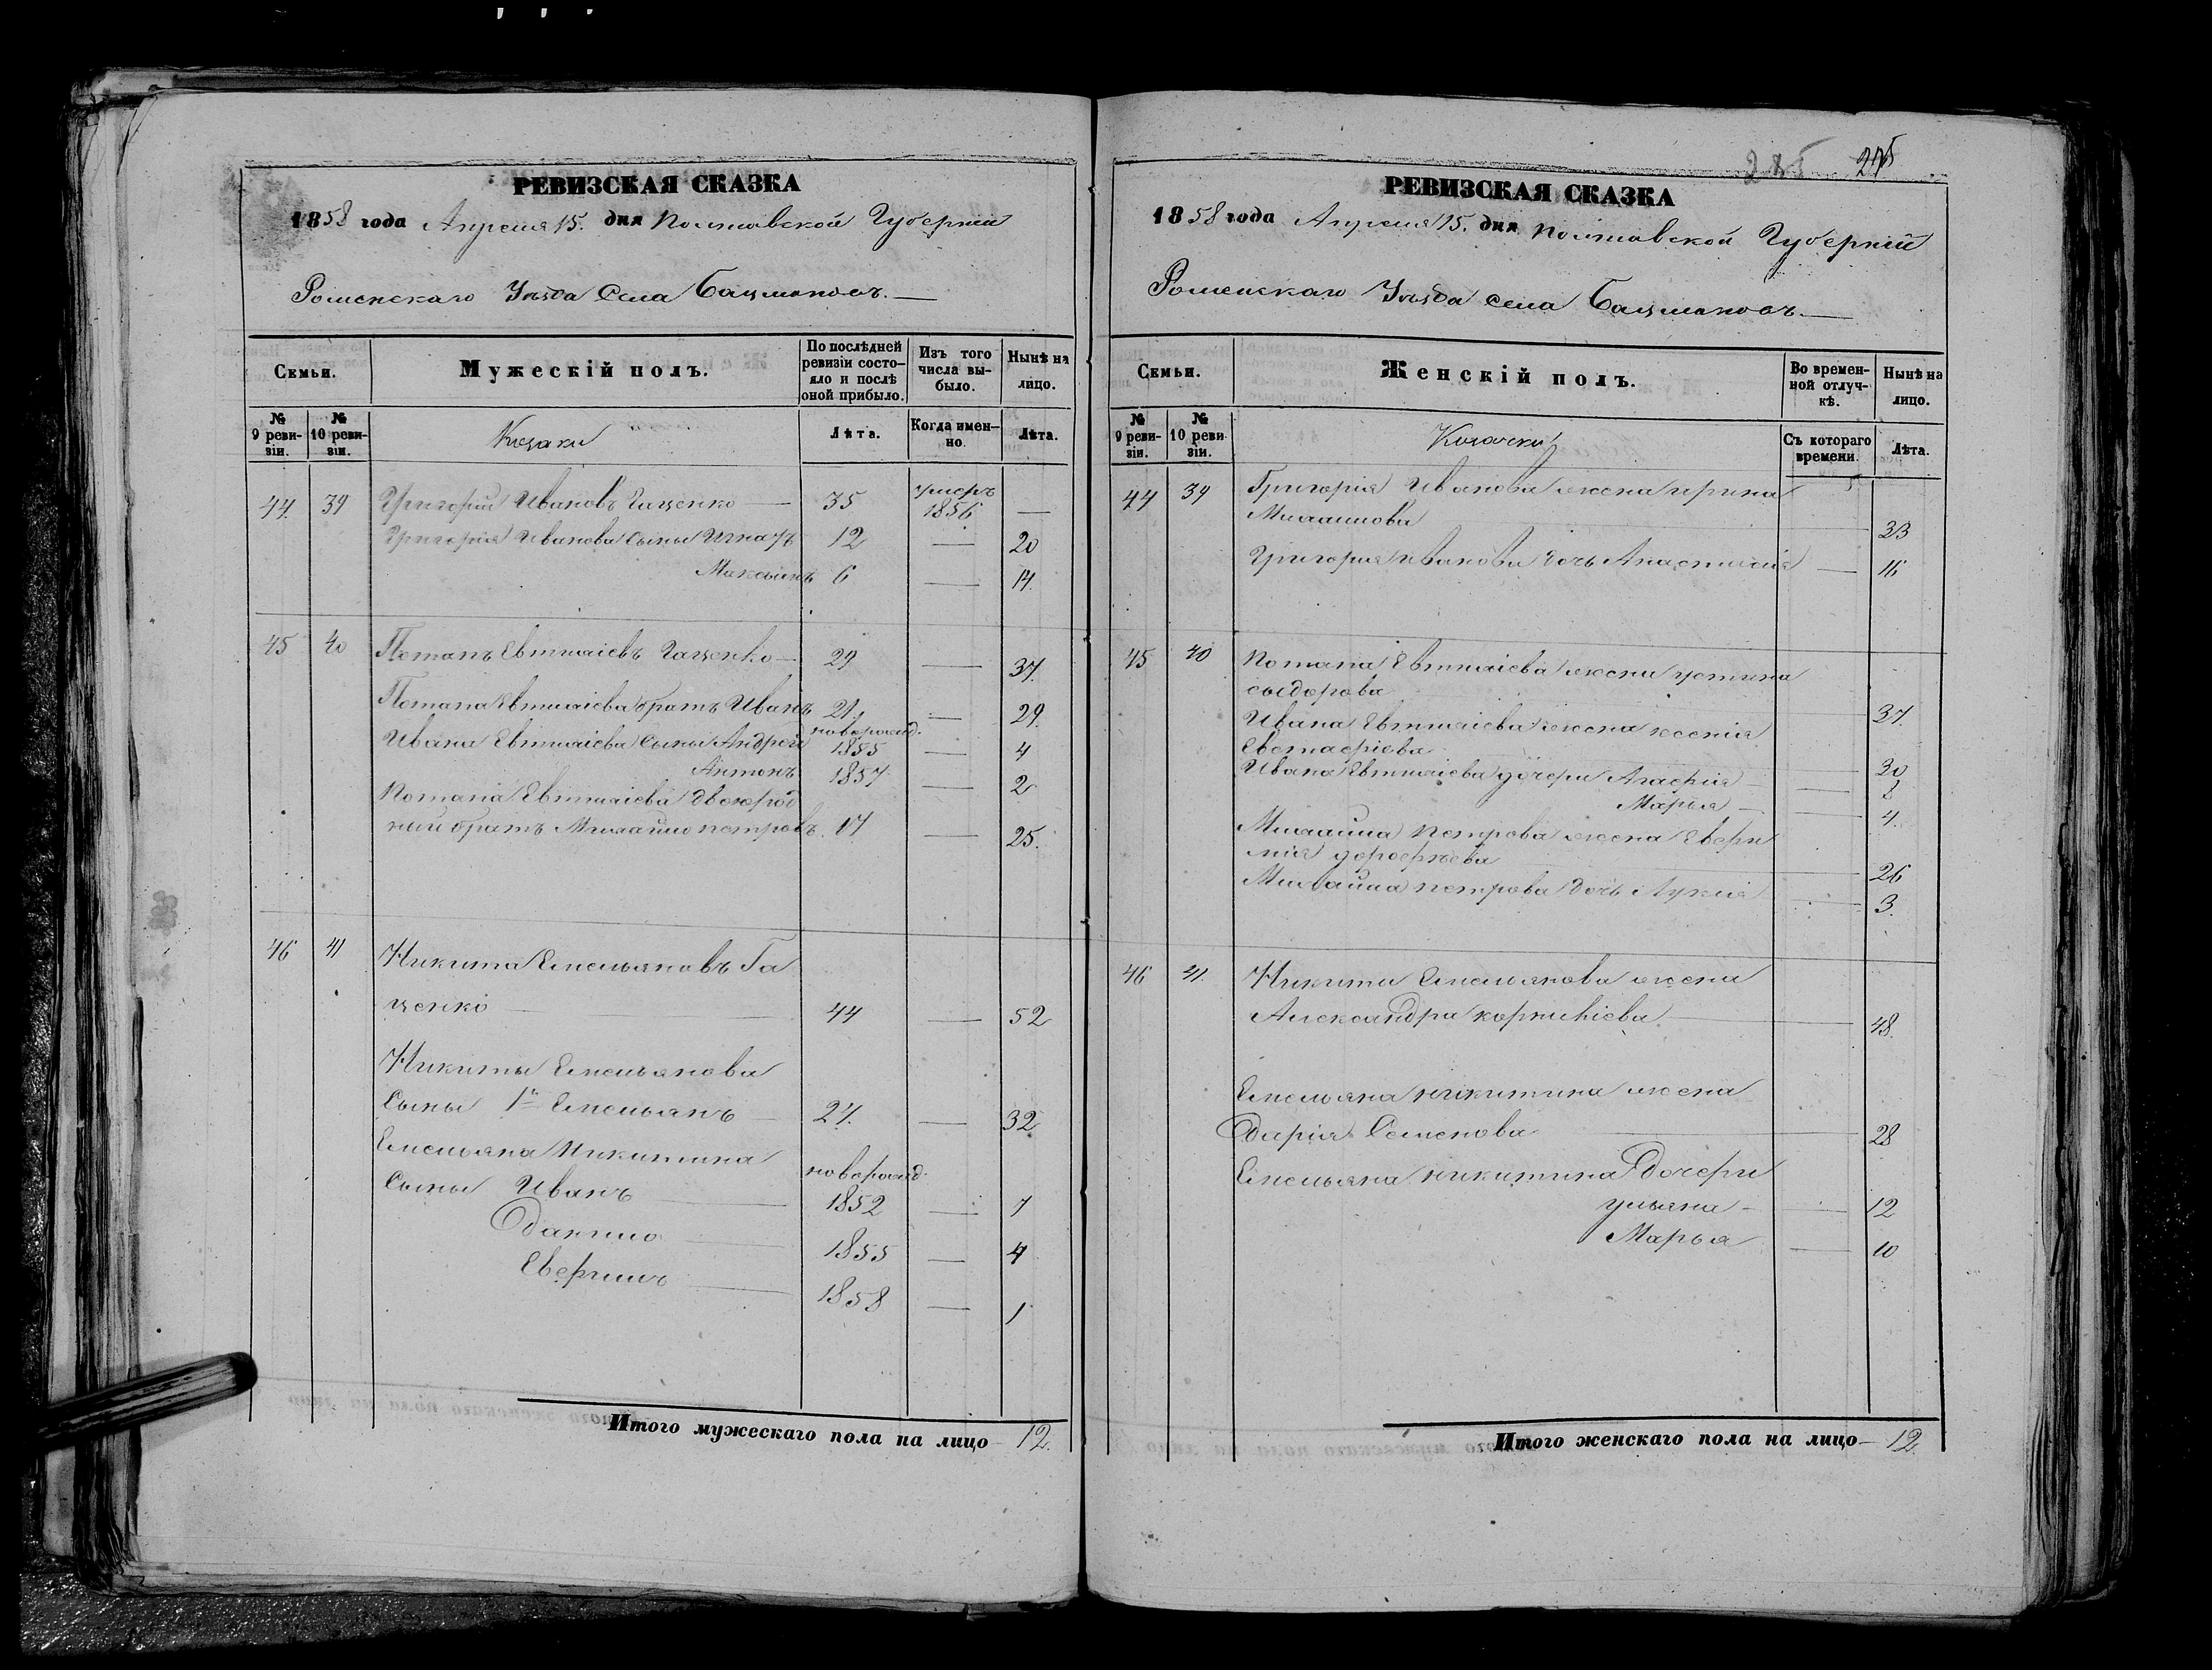 РЕВИЗСКАЯ СКАЗКА
1858 года Апреля 15. дня Полтавской Губерніи
Роменскаго Уѣзда Села Бацмановъ.
Семьи.
Мужескій полъ.
По послѣдней ревизіи состояло и послѣ оной прибыло.
Изъ того числа выбыло.
Нынѣ на лицо.
№ 9 ревизіи.
№ 10 ревизіи.
Козаки
Лѣта.
Когда именно.
Лѣта.
44. 39 Григорій Ивановъ Гаценко — 35 умеръ 1856 —
Григорія Иванова сыны Игнатъ 12 — 20
Максимъ 6 — 14.
45 40 Потапъ Евтихіевъ Гаценко — 29 — 37.
Потапа Евтихіева братъ Иванъ 21. — 29.
Ивана Евтихіева сыны Андрей новорожд. 1855 — 4
Антонъ 1857 — 2
Потапа Евтихіева двоюрод
ный братъ Михайло Петровъ. 17 — 25.
46 41 Никита Емельяновъ Га
ценко — 44 — 52
Никиты Емельянова
Сыны 1й Емельянъ 24. — 32
Емельяна Никитина
Сыны Иванъ новорожд. 1852 — 7
Данило 1855 — 4
1858 — 1
Итого мужескаго пола на лицо 12.
РЕВИЗСКАЯ СКАЗКА
1858 года Апреля 15. дня Полтавской Губерніи
Роменскаго Уѣзда села Бацмановъ.
Семьи.
Женскій полъ.
Во временной отлучкѣ.
Нынѣ на лицо.
№ 9 ревизіи.
№ 10 ревизіи.
Козачки
Съ котораго времени.
Лѣта.
44 39 Григорія Иванова жена Ирина
Михайлова — 33
Григорія Иванова дочь Анастасія — 16
45 40 Потапа Евтихіева жена Устина
Сыдорова — 37.
Ивана Евтихіева жена Ксенія
Евстафіева — 30
Ивана Евтихіева дочери Агафія — 2
Марья — 4.
Михайла Петрова жена Евфи
мія Дорофѣева — 26
Михайла Петрова дочь Лукія — 3.
46 41. Никиты Емельянова жена
Александра Корнѣіева — 48.
Емельяна Никитина жена
Дарія Семенова — 28
Емельяна Никитина Дочери
Ульяна — 12
Марья — 10
Итого женскаго пола на лицо — 12.